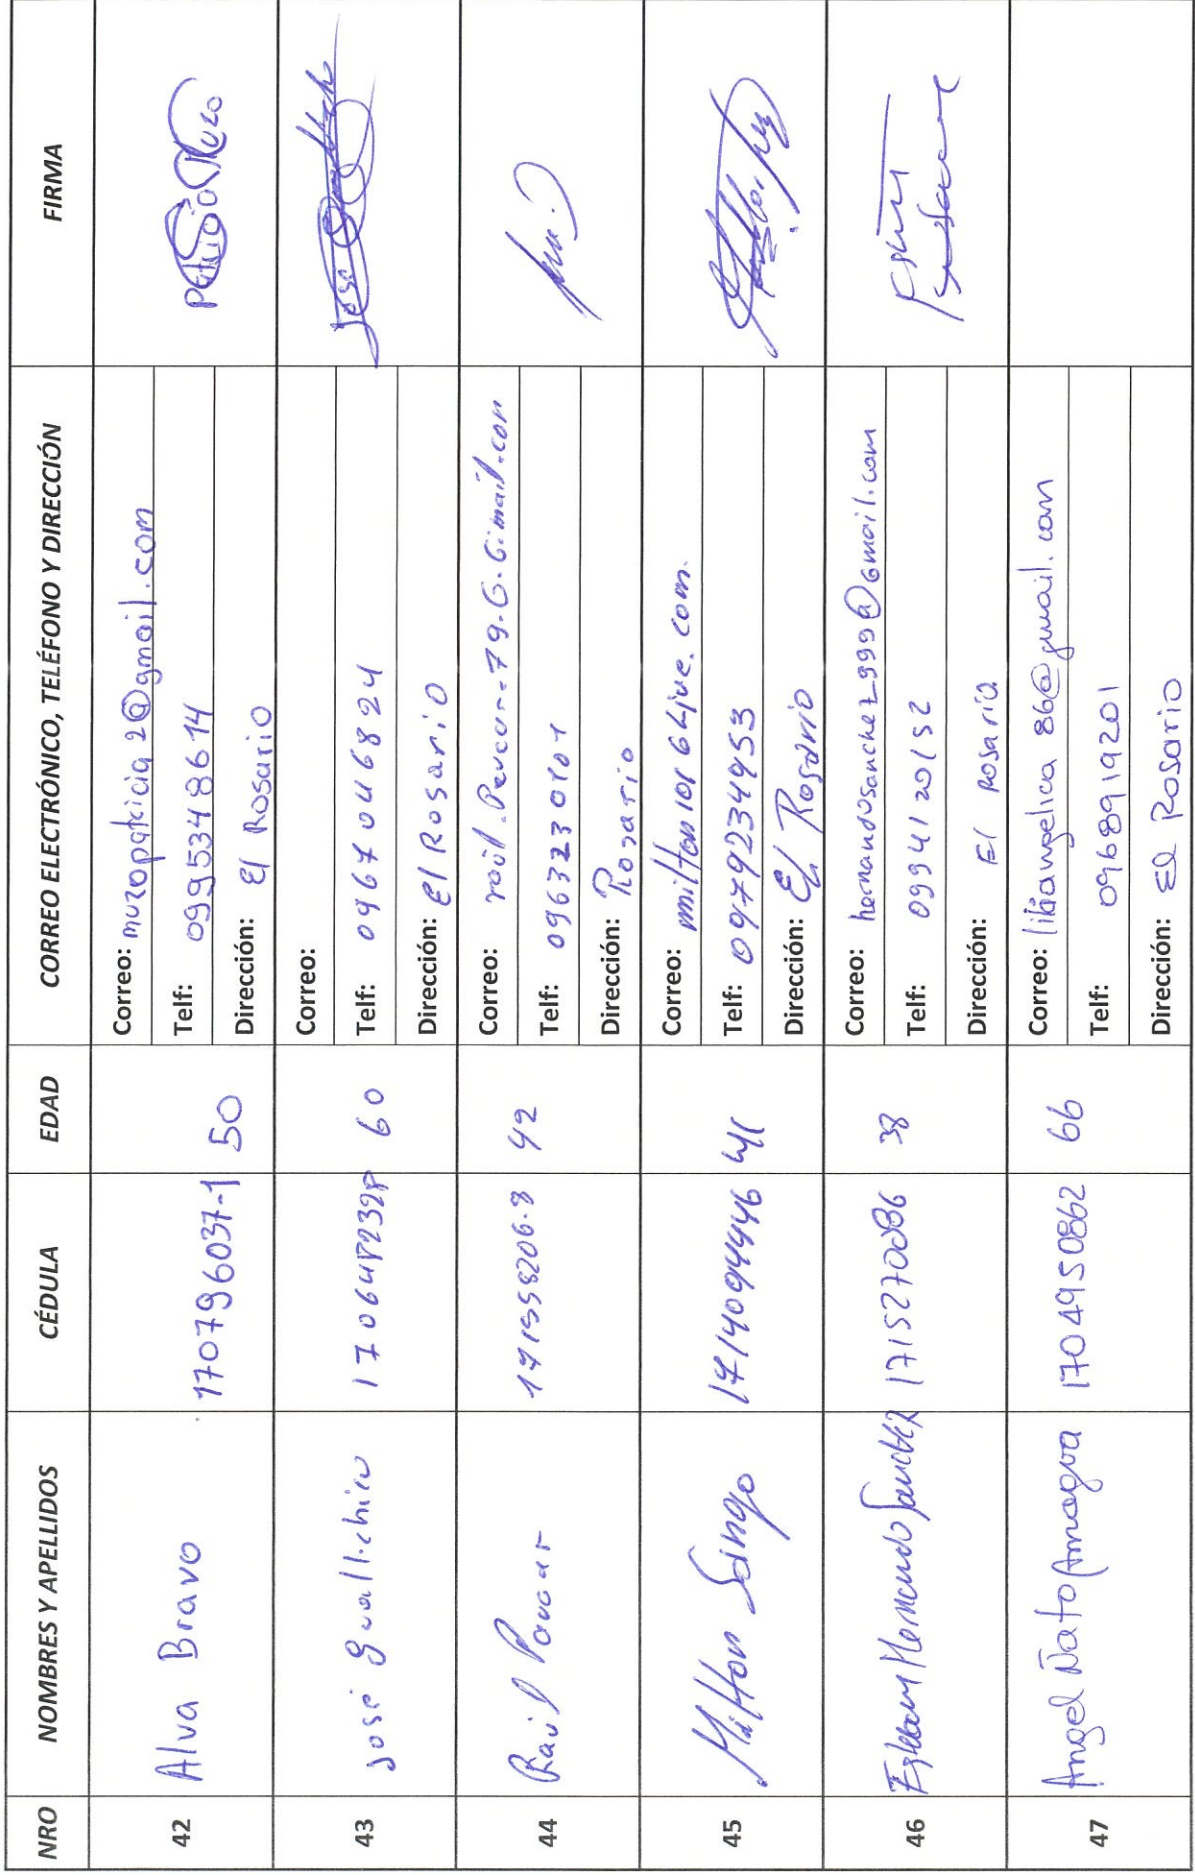 NRO NOMBRES Y APELLIDOS CÉDULA EDAD CORREO ELECTRÓNICO, TELÉFONO Y DIRECCIÓN FIRMA
42 Alva Bravo 170796037-1 50
Correo: muzopatricia2@gmail.com
Telf: 0995348614
Dirección: El Rosario
43 José Guallichico 60
Correo:
Telf: 0967046824
Dirección: El Rosario
44 Raúl 171558206-8 42
Correo:
Telf: 0963230101
Dirección: Rosario
45 Milton Sango 1714094446 41
Correo:
Telf: 0979234953
Dirección: El Rosario
46 Esteban Hernando Sanchez 1715270086 38
Correo: hernandosanchez1999@gmail.com
Telf: 0994120152
Dirección: El Rosario
47 Angel Ñato Amagua 1704950862 66
Correo: liliangelica86@gmail.com
Telf: 0968919201
Dirección: El Rosario